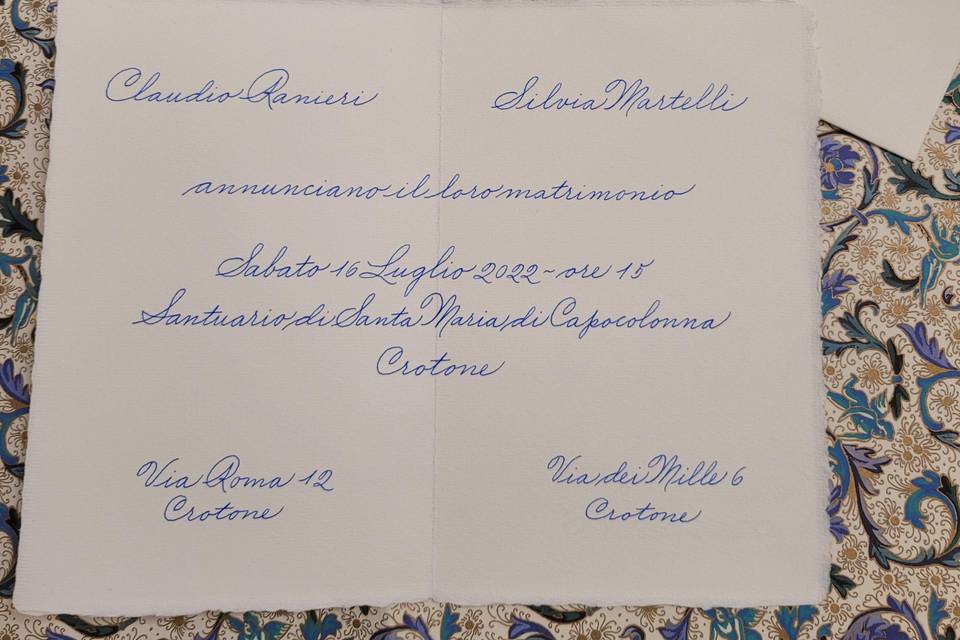 Claudio Ranieri
Silvia Martelli
annunciano il loro matrimonio
Sabato 16 Luglio 2022 ~ ore 15
Santuario di Santa Maria di Capocolonna
Crotone
Via Roma 12
Crotone
Via dei Mille 6
Crotone